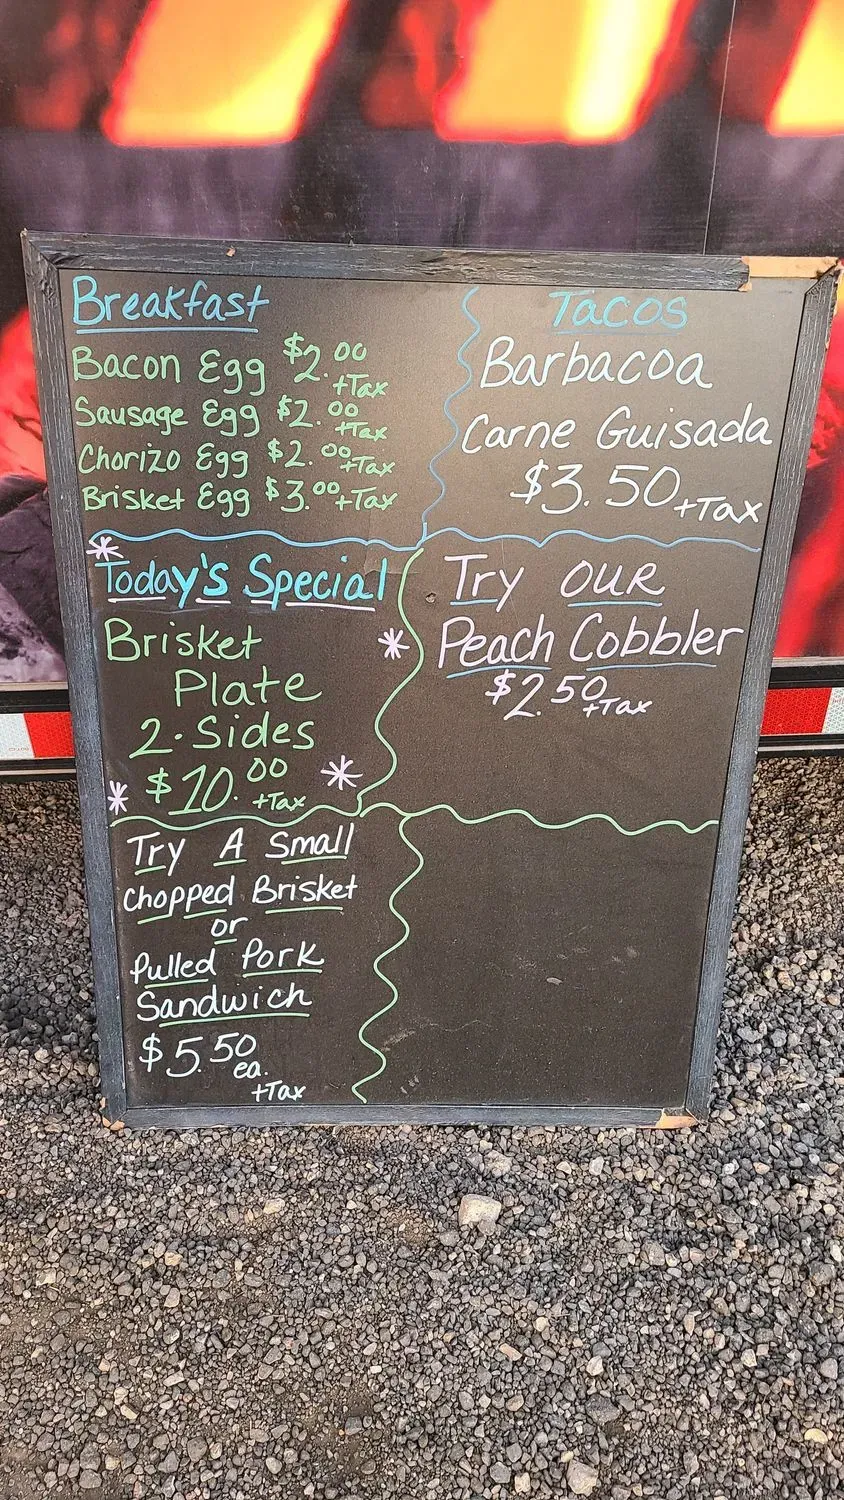 Breakfast
Bacon Egg $2.00 +Tax
Sausage Egg $2.00 +Tax
Chorizo Egg $2.00 +Tax
Brisket Egg $3.00 +Tax
Tacos
Barbacoa
Carne Guisada
$3.50 +Tax
Today's Special
Brisket
Plate
2 - Sides
$10.00 +Tax
Try OUR
Peach Cobbler
$2.50 +Tax
Try A Small
Chopped Brisket
or
Pulled Pork
Sandwich
$5.50 ea.
+Tax